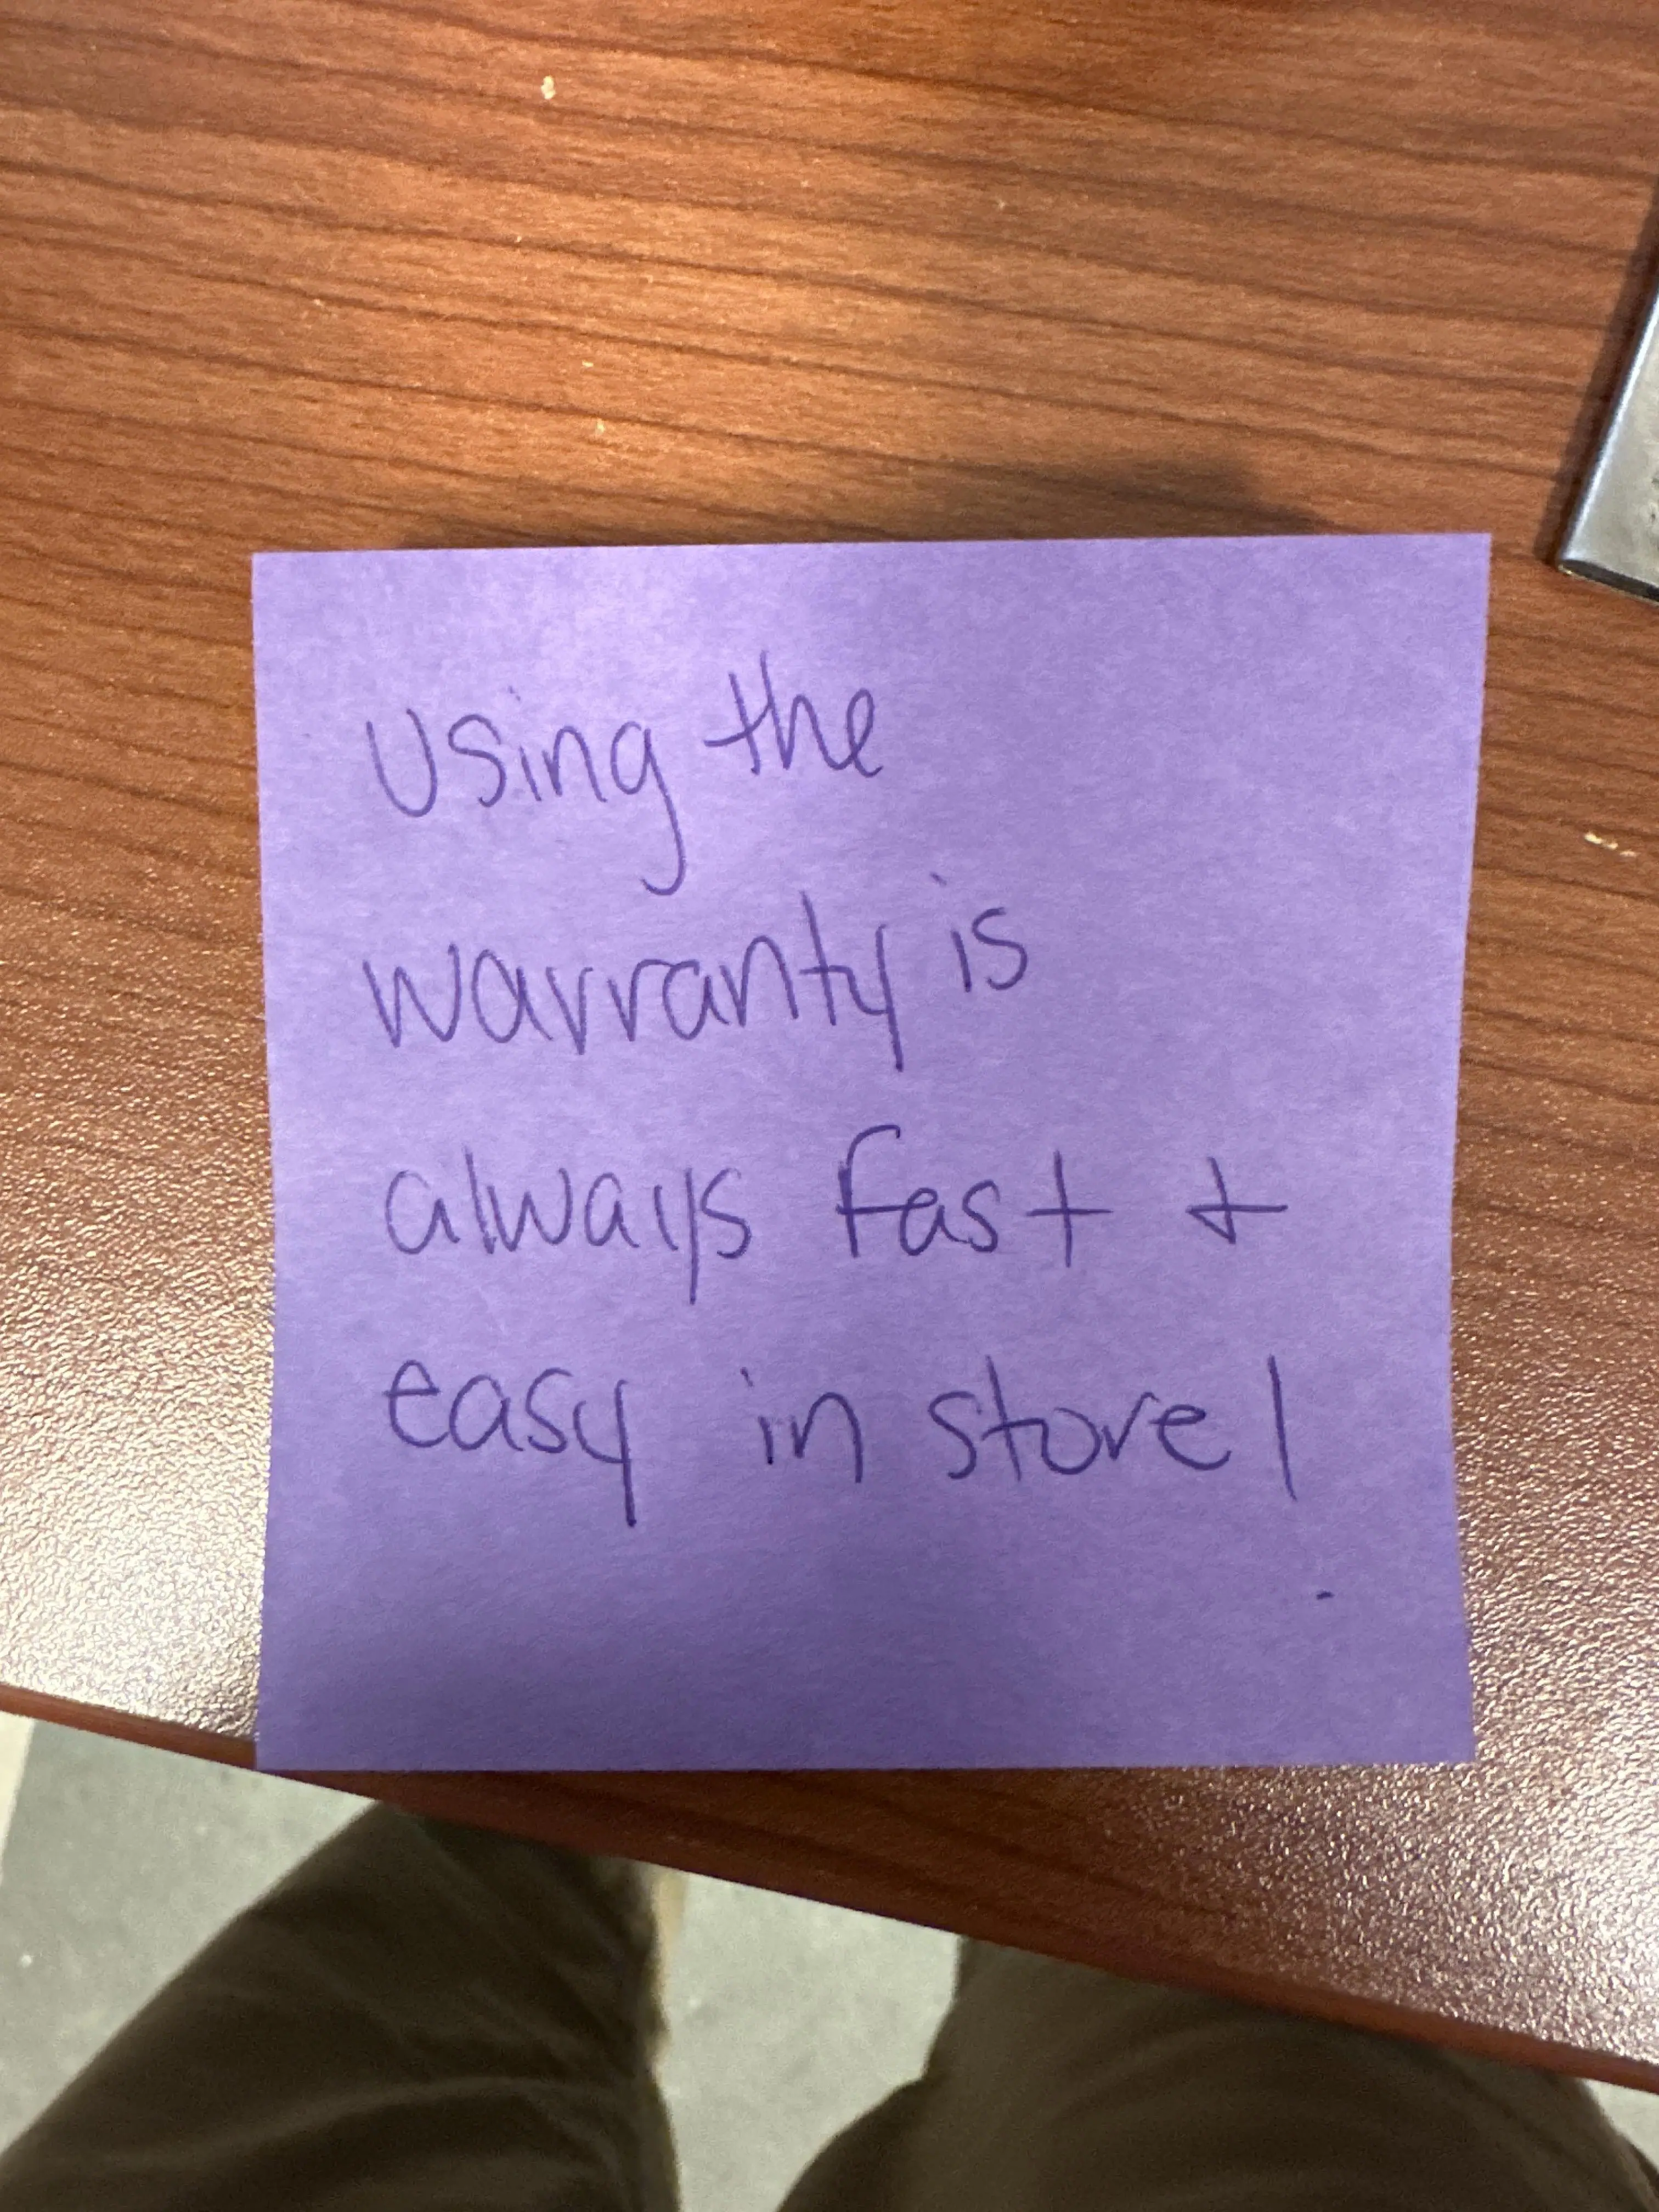 Using the
warranty is
always fast +
easy in store!